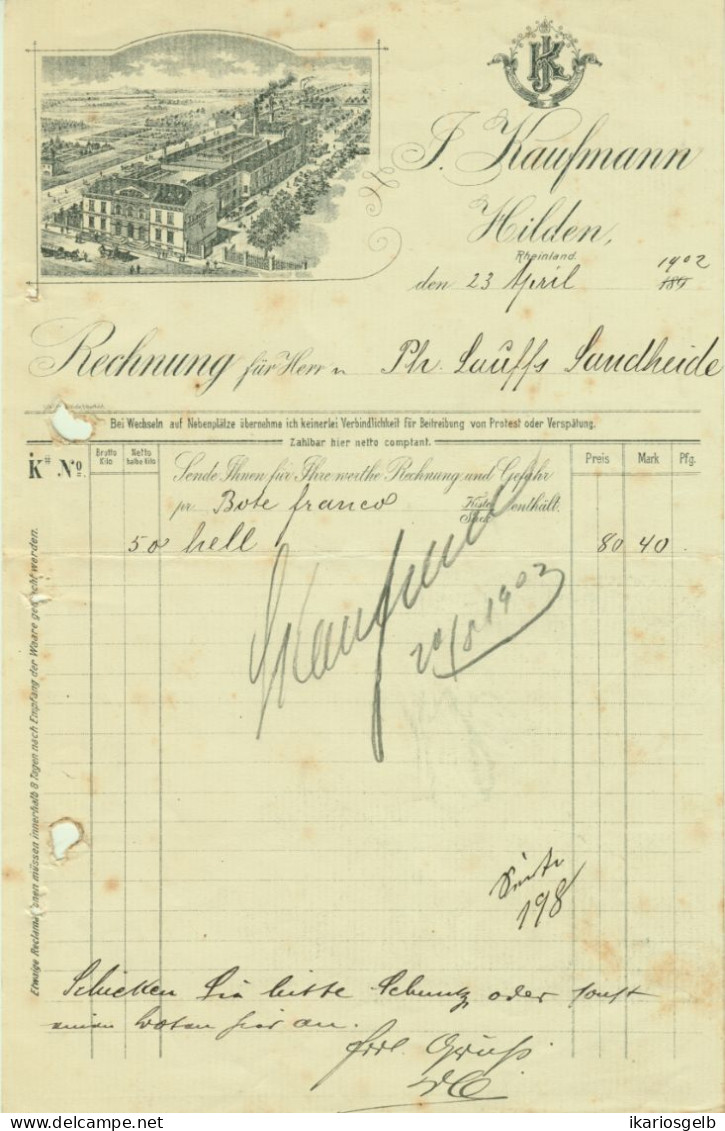 JK
J. Kaufmann
Hilden,
Rheinland.
den 23 April 1902
189
Rechnung für Herrn Ph. Lauffs Sandheide
Bei Wechseln auf Nebenplätze übernehme ich keinerlei Verbindlichkeit für Beitreibung von Protest oder Verspätung.
Zahlbar hier netto comptant.
K# No. Brutto Kilo Netto halbe Kilo Preis Mark Pfg.
Sende Ihnen für Ihre werthe Rechnung und Gefahr
pr. Bote franco Kiste Sack enthält.
50 hell 80 40 .
Kaufmann
20/8 1902
Seite
198
Etwaige Reclamationen müssen innerhalb 8 Tagen nach Empfang der Waare gemacht werden.
Schicken Sie bitte Schmitz oder sonst
einen Boten hier an.
frdl. Gruß
ikariosgelb